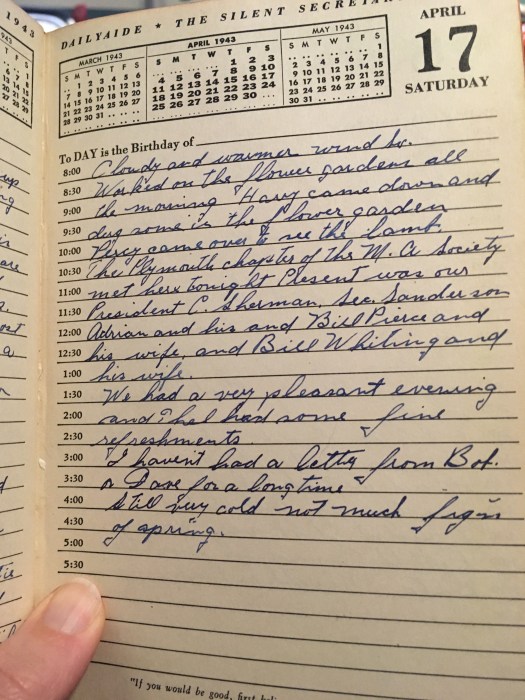 1943
DAILYAIDE ★ THE SILENT SECRETAR
MARCH 1943
S M T W T F S
. 1 2 3 4 5 6
7 8 9 10 11 12 13
14 15 16 17 18 19 20
21 22 23 24 25 26 27
28 29 30 31 . . .
APRIL 1943
S M T W T F S
. . . . 1 2 3
4 5 6 7 8 9 10
11 12 13 14 15 16 17
18 19 20 21 22 23 24
25 26 27 28 29 30 .
MAY 1943
S M T W T F S
. . . . . . 1
2 3 4 5 6 7 8
9 10 11 12 13 14 15
16 17 18 19 20 21 22
23 24 25 26 27 28 29
30 31
APRIL
17
SATURDAY
To DAY is the Birthday of
8:00 Cloudy and warmer wind
8:30 Worked on the flower gardens all
9:00 the morning Harry came down and
9:30 dug some in the flower garden
10:00 Percy came over to see the lamb.
10:30 The Plymouth chapter of the M. A Society
11:00 met here tonight Present was our
11:30 President C. Sherman, Sec. Sanderson
12:00 Adrian and his and Bill Pierce and
12:30 his wife, and Bill Whiting and
1:00 his wife.
1:30 We had a very pleasant evening
2:00 and had some fine
2:30 refreshments.
3:00 I havent had a letter from Bot.
3:30 or Dave for a long time
4:00 Still very cold not much signs
4:30 of spring.
5:00
5:30
"If you would be good, first